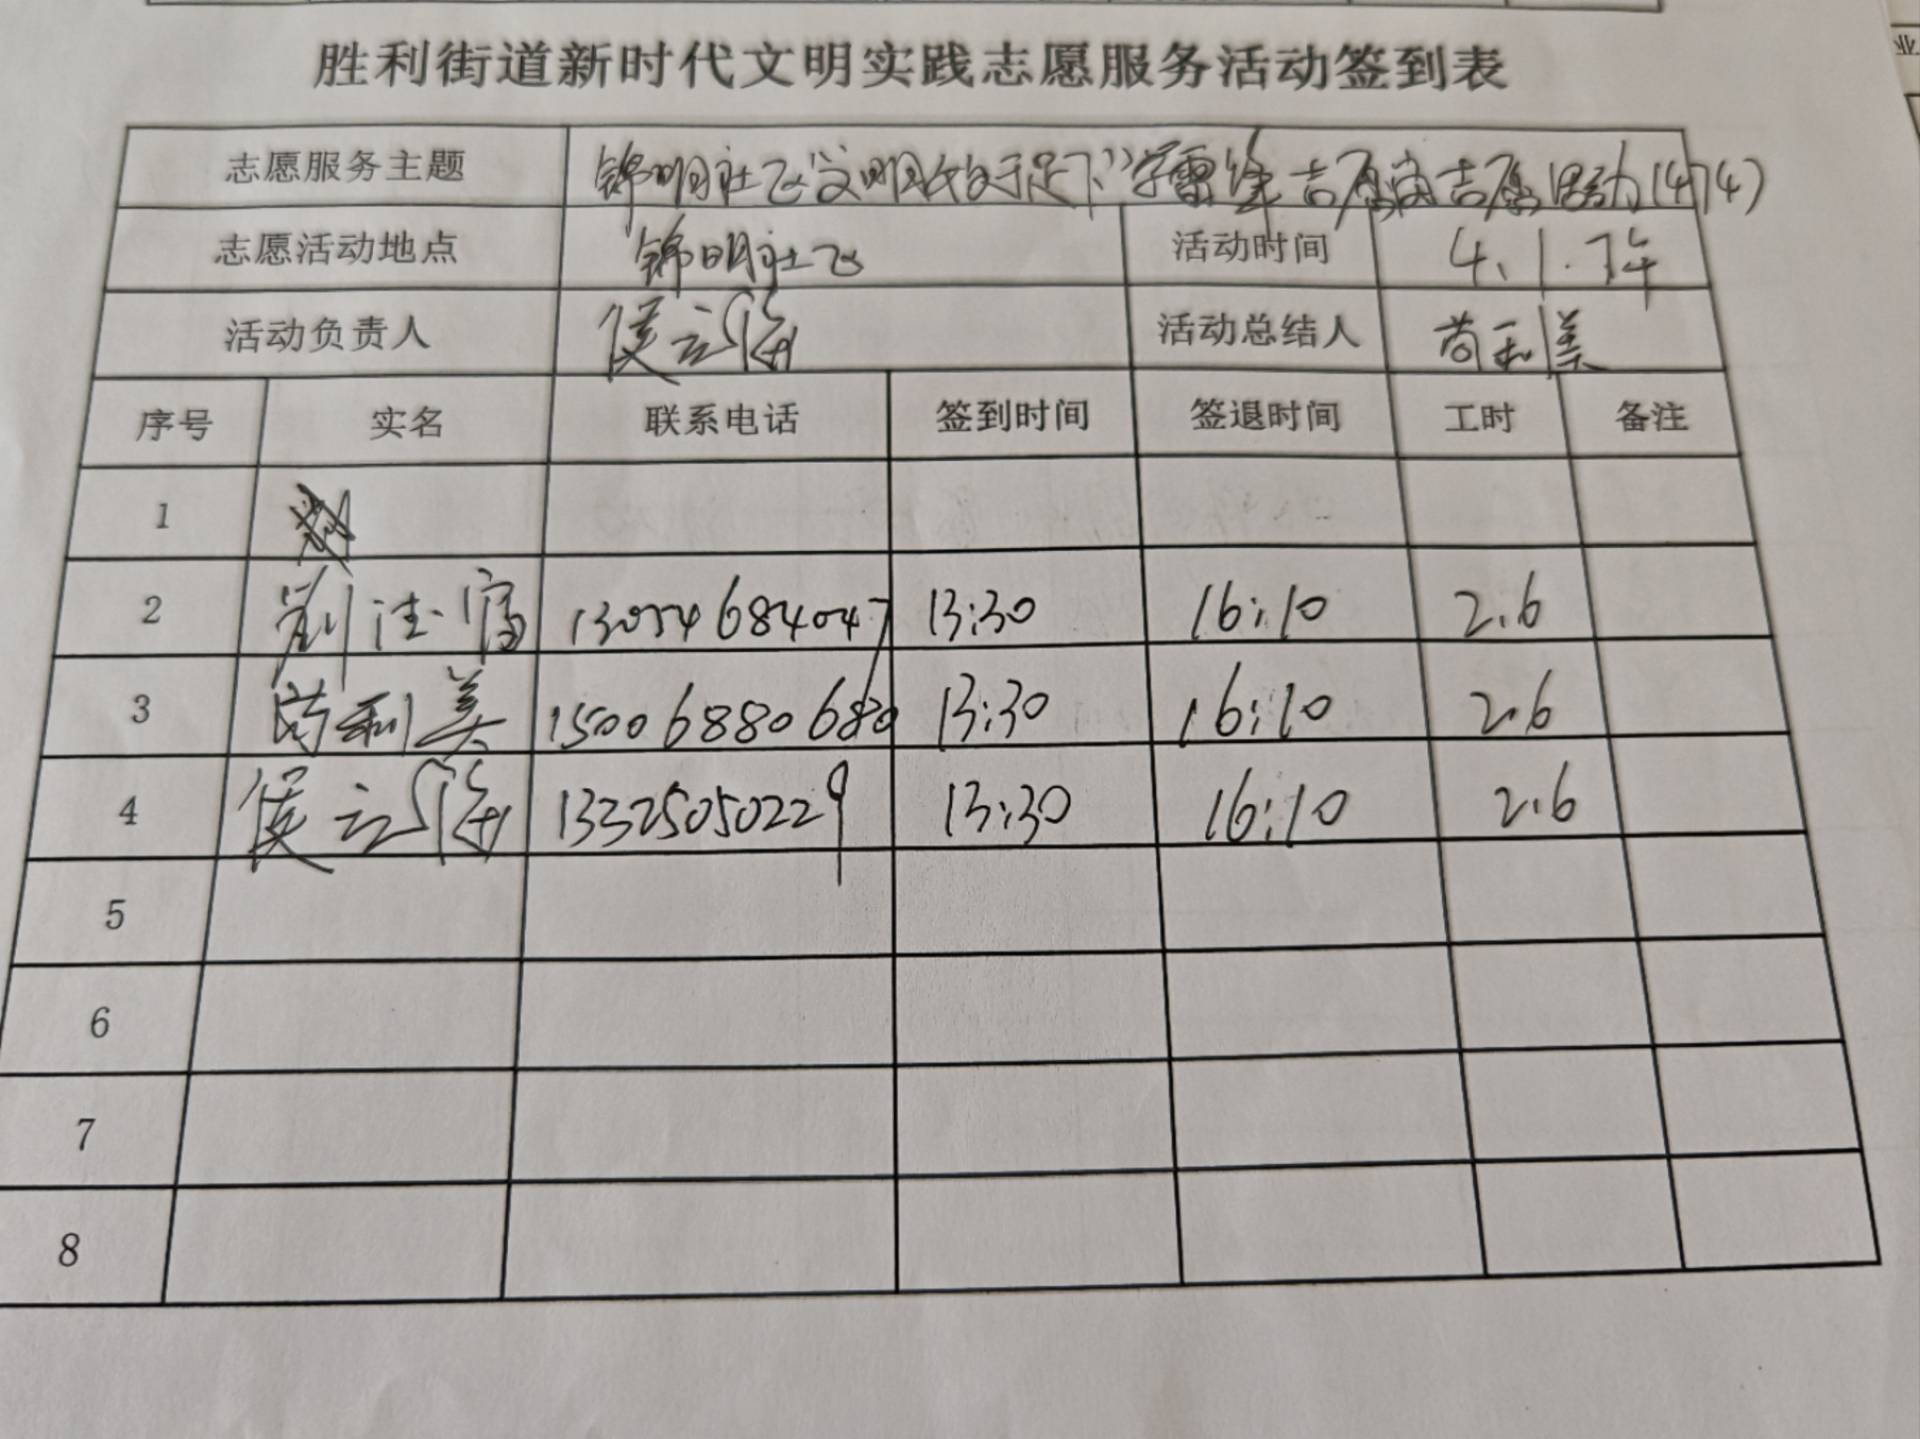 胜利街道新时代文明实践志愿服务活动签到表
志愿服务主题 锦明社飞"文明始于足下"学雷锋 志愿活动(474)
志愿活动地点 锦明社飞 活动时间 4.1.下午
活动负责人 侯 活动总结人 苗利美
序号 实名 联系电话 签到时间 签退时间 工时 备注
1
2 刘洼富 13054684047 13:30 16:10 2.6
3 苗利美 15006880680 13:30 16:10 2.6
4 侯 13325050229 13:30 16:10 2.6
5
6
7
8
业